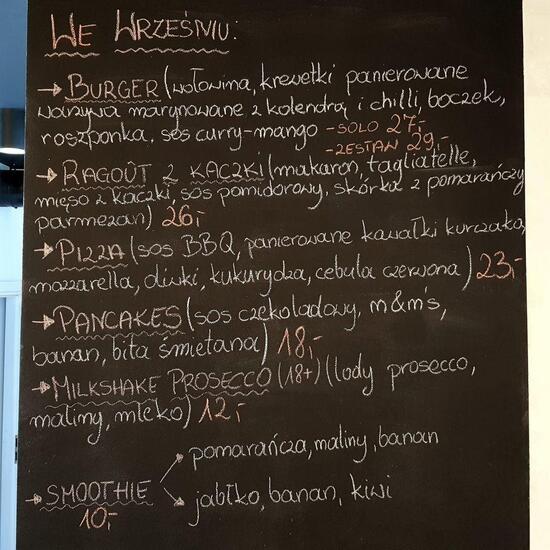 WE WRZEŚNIU:
→ BURGER (wołowina, krewetki panierowane
warzywa marynowane z kolendrą i chilli, boczek,
roszponka, sos curry-mango - SOLO 27,-
- ZESTAW 29,-
→ RAGOÛT Z KACZKI (makaron, tagliatelle,
mięso z kaczki, sos pomidorowy, skórka z pomarańczy
parmezan) 26,-
→ PIZZA (sos BBQ, panierowane kawałki kurczaka,
mozzarella, oliwki, kukurydza, cebula czerwona) 23,-
→ PANCAKES (sos czekoladowy, m&m's,
banan, bita śmietana) 18,-
→ MILKSHAKE PROSECCO (18+) (lody prosecco,
maliny, mleko) 12,-
pomarańcza, maliny, banan
→ SMOOTHIE
jabłko, banan, kiwi
10,-